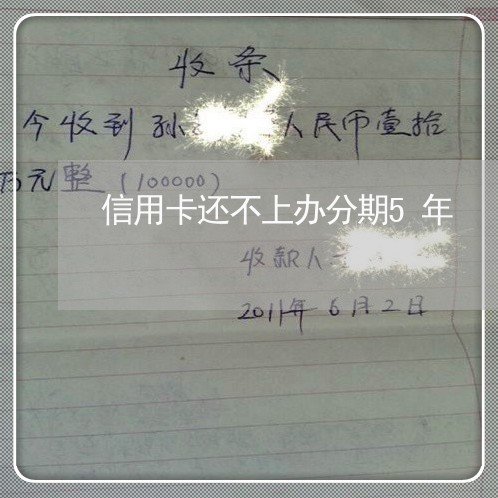 收条
今收到孙 人民币壹拾
万元整(100000)
信用卡还不上办分期5年
收款人
2011年6月2日